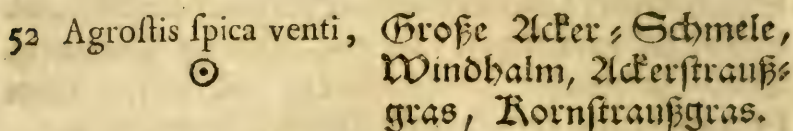 52 Agroſtis ſpica venti, Große Acker⸗Schmele,
☉ Windhalm, Ackerſtrauß⸗
gras, Kornſtraußgras.